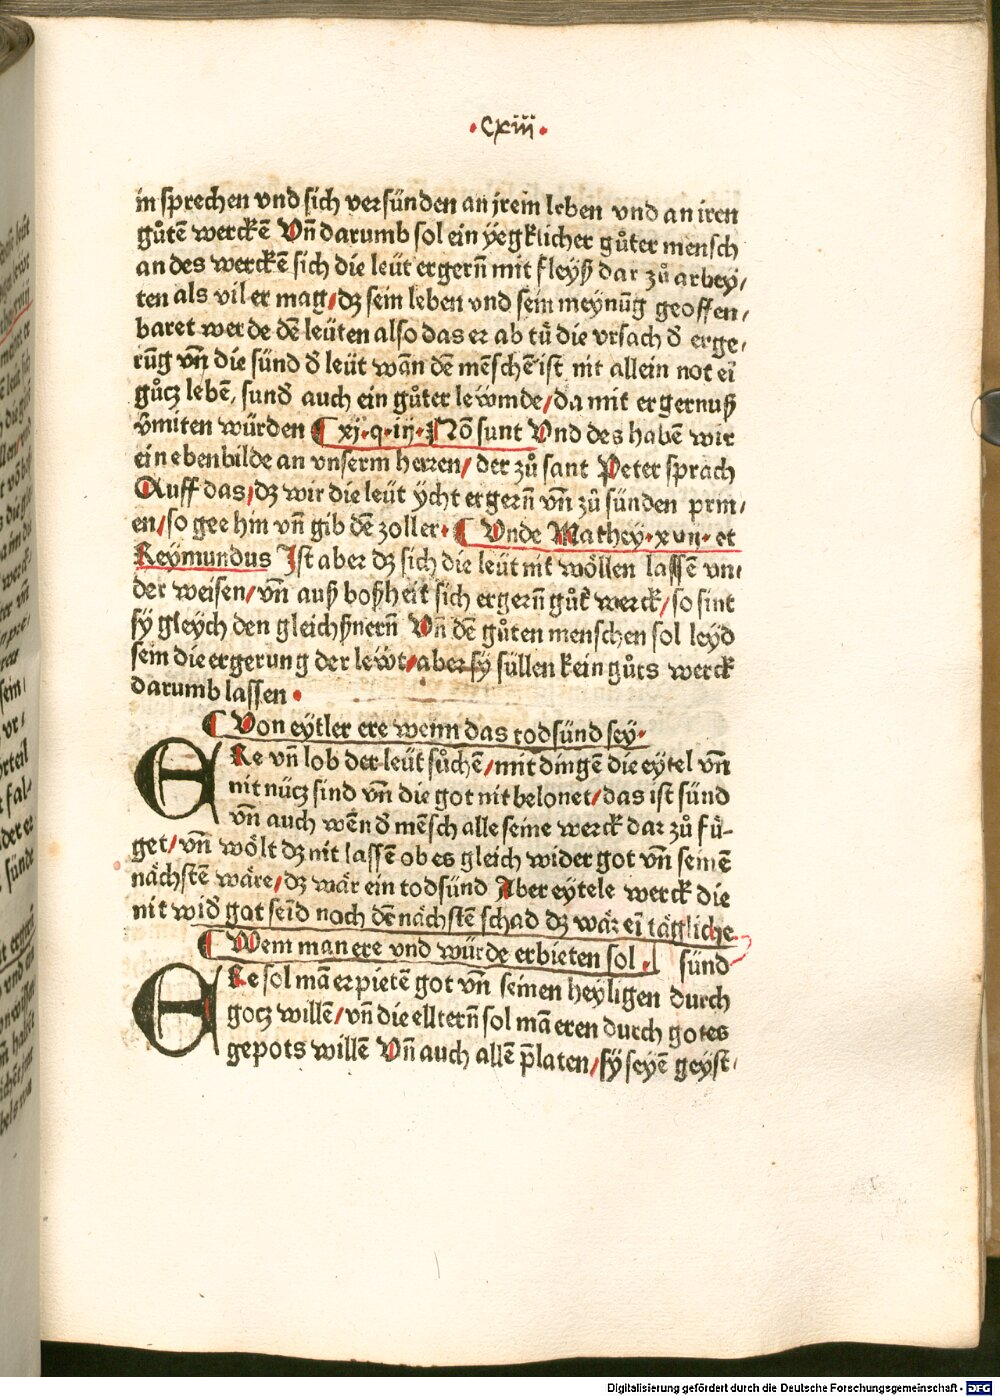 ·Cxiij·
in sprechen vnd sich versünden an jrem leben vnd an iren
gůtē werckē Vn̄ darumb sol ein yegklicher gůter mensch
an des werckē sich die leüt ergern̄ mit fleyß dar zů arbey/
ten als vil er mag/dz sein leben vnd sein meynūg geoffen/
baret werde dē leüten also das er ab tů die vrsach d̄ erge/
rūg vn̄ die sünd d̄ leüt wān dē mēschē ist nit allein not ei̅
gůcz lebē, sund̄ auch ein gůter lewmde/da mit ergernuß
v̄miten würden ¶ xj·q·iij· Nō sunt Vnd des habē wir
ein ebenbilde an vnserm herren/ der zů sant Peter sprach
Auff das/dz wir die leüt ycht ergern̄ vn̄ zů sünden prin/
en/so gee hin vn̄ gib dē zoller· ¶ Vnde Mathey·xvii· et
Reymundus Ist aber dz sich die leüt nit wöllen lassē vn/
der weisen/vn̄ auß boßheit sich ergern̄ gůt werck/so sint
sy gleych den gleichßnern̄ Vn̄ dē gůten menschen sol leyd
sein die ergerung der lewt/aber sy süllen kein gůts werck
darumb lassen·
¶ Von eytler ere wenn das todsünd sey·
ERe vn̄ lob der leüt sůchē/mit dingē die eytel vn̄
nit nücz sind vn̄ die got nit belonet/das ist sünd
vn̄ auch wēn d̄ mēsch alle seine werck dar zů fü-
get/vn̄ wölt dz nit lassē ob es gleich wider got vn̄ seinē
nächstē wäre/dz wär ein todsünd Aber eytele werck die
nit wid̄ got sei̅d noch dē nächstē schad dz wär ei̅ tägliche
¶ Wem man ere vnd würde erbieten sol. sünd
ERe sol mā erpietē got vn̄ seinen heyligen durch
gocz willē/vn̄ die elltern̄ sol mā eren durch gotes
gepots willē Vn̄ auch allē p̄laten/sy seyē geyst/
Digitalisierung gefördert durch die Deutsche Forschungsgemeinschaft - DFG